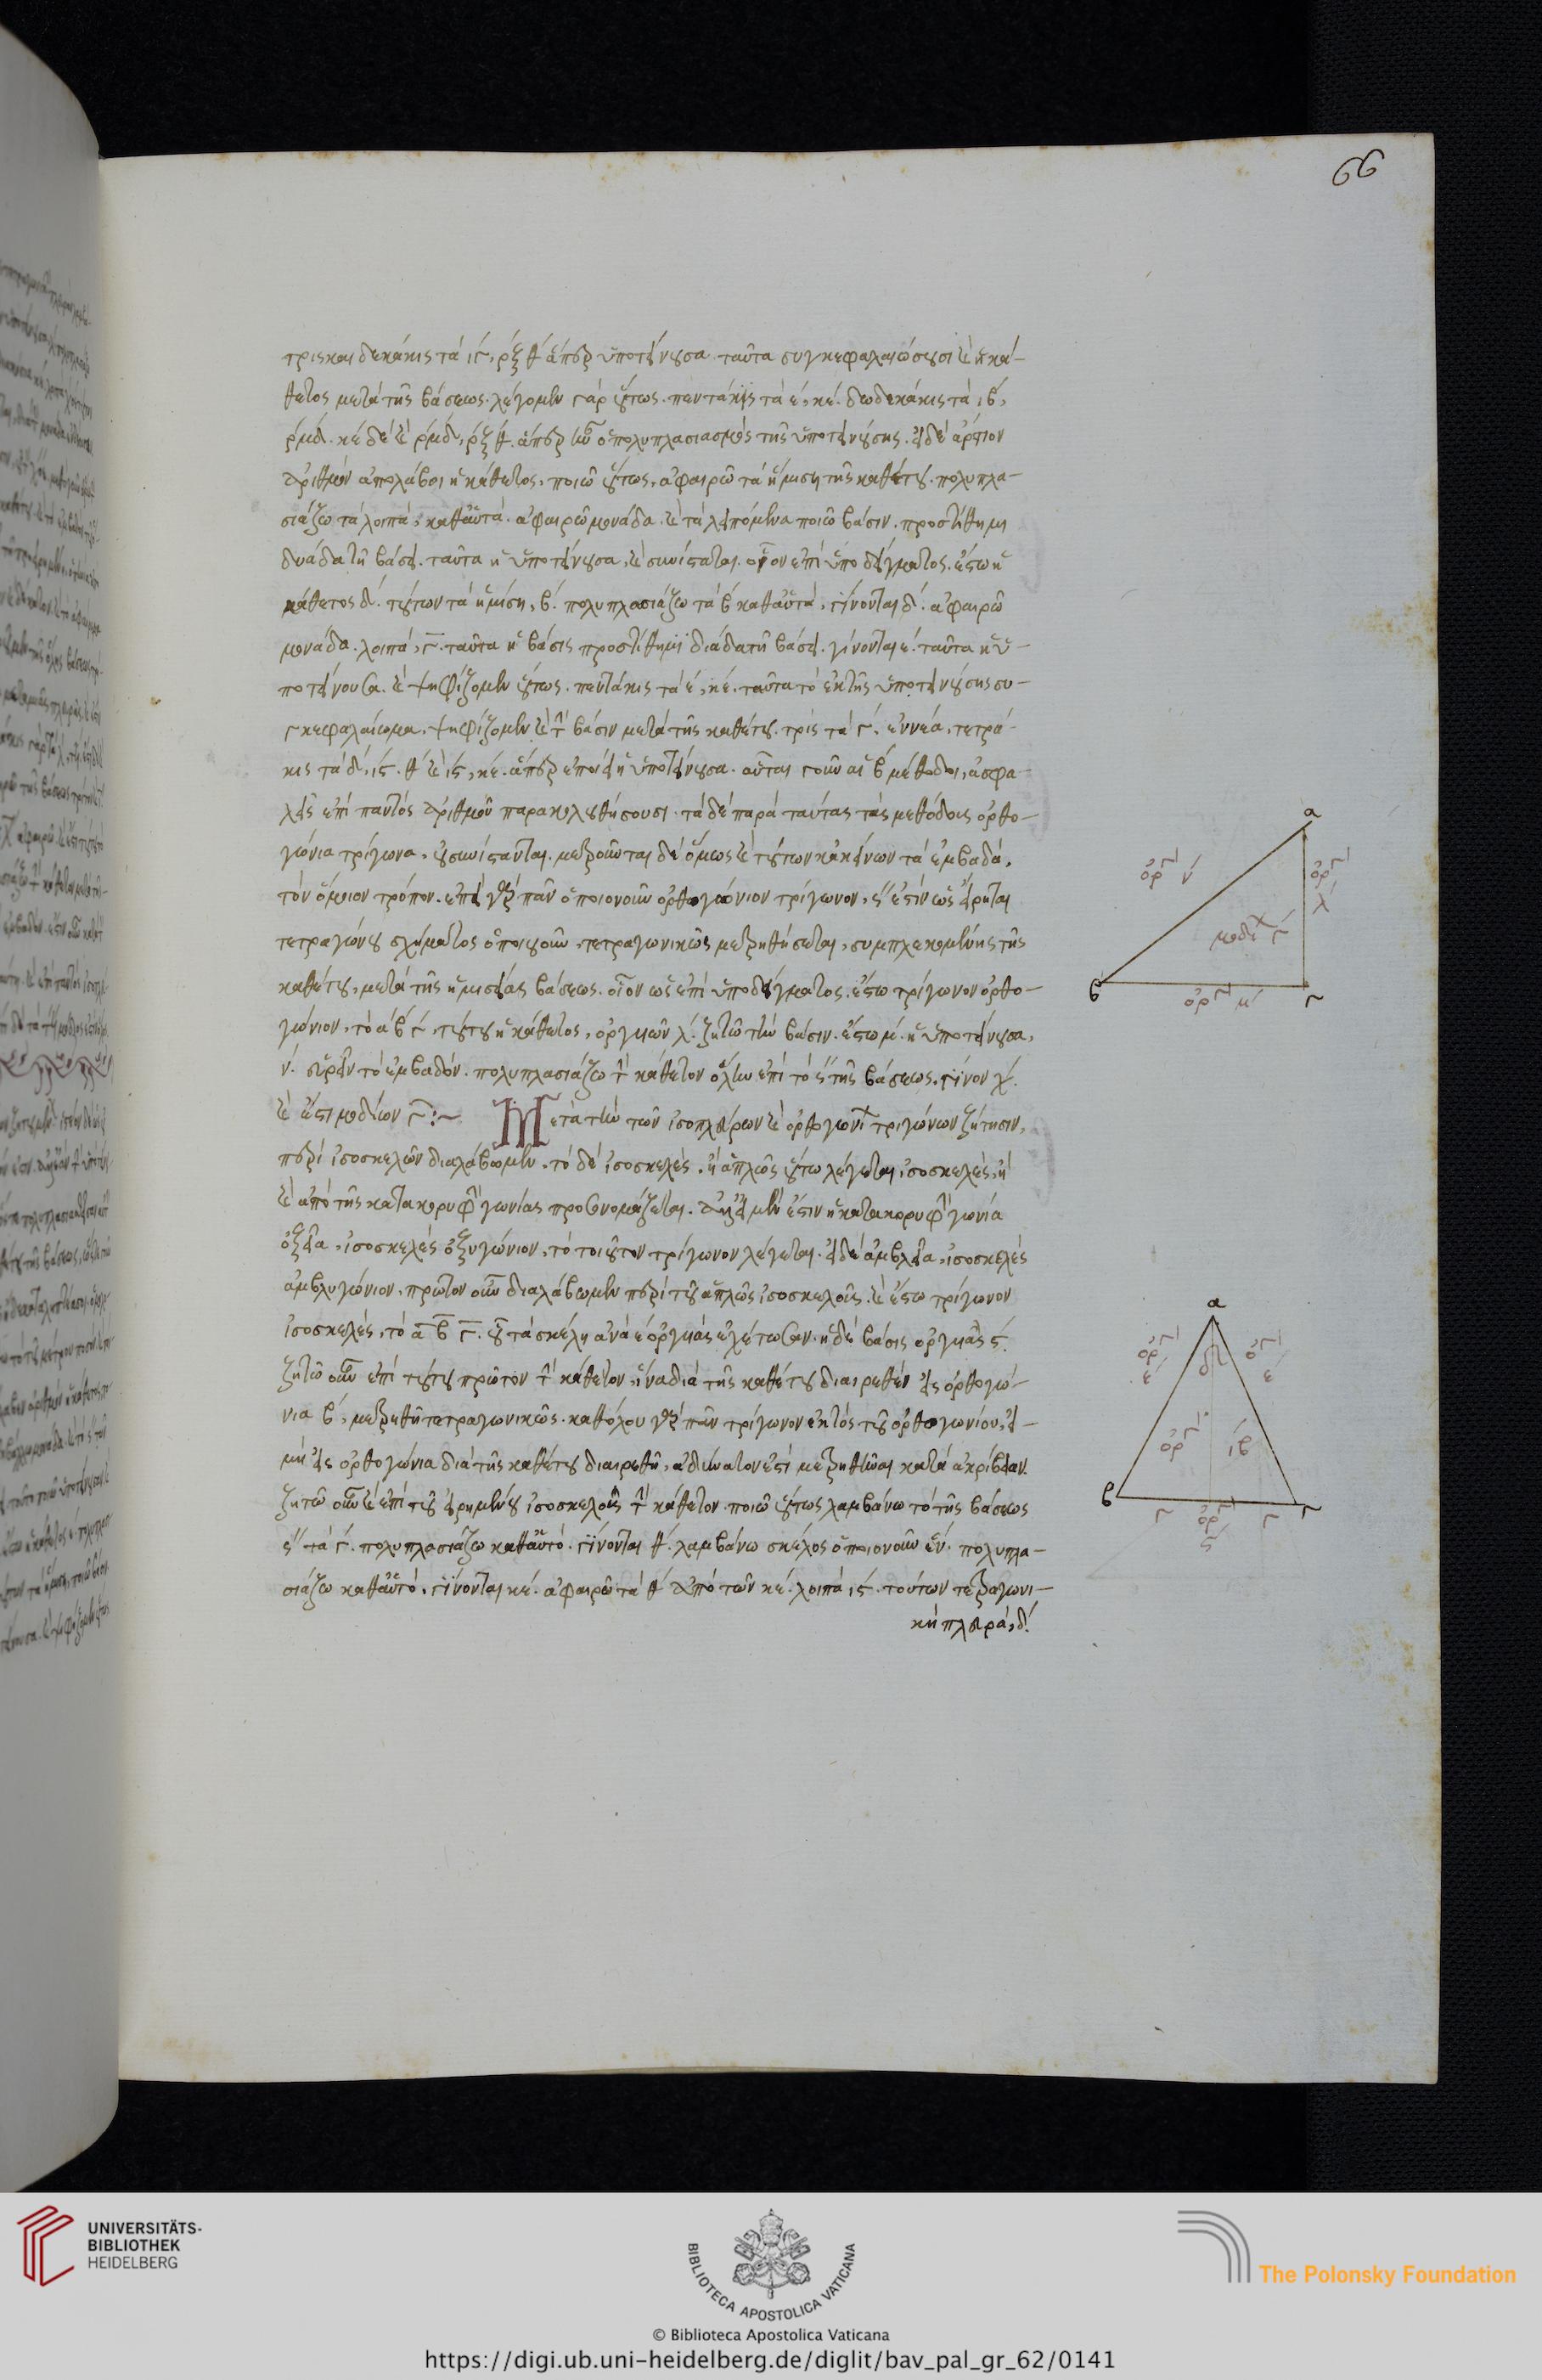 66
τρισκαιδεκάκις τὰ ιγ, ρξθ ἅπερ ὑποτείνουσα. ταῦτα συγκεφαλαιώσουσι καὶ ἡ κά-
θετος μετὰ τῆς βάσεως. λέγομεν γὰρ οὕτως. πεντάκις τὰ ε, κε. δωδεκάκις τὰ ιβ,
ρμδ. κε δὲ καὶ ρμδ, ρξθ. ἅπερ ἦν ὁ πολυπλασιασμὸς τῆς ὑποτεινούσης. εἰ δὲ ἄρτιον
ἀριθμὸν ἀπολάβοι ἡ κάθετος, ποιῶ οὕτως. ἀφαιρῶ τὰ ἡμίση τῆς καθέτου. πολυπλα-
σιάζω τὰ λοιπὰ, καθ' αὑτὰ. ἀφαιρῶ μονάδα. καὶ τὰ λειπόμενα ποιῶ βάσιν. προστίθημι
δυάδα τῇ βάσει. ταῦτα ἡ ὑποτείνουσα, καὶ συνίσταται. οἷον ἐπὶ ὑποδείγματος. ἔστω ἡ
κάθετος δ. τούτων τὰ ἡμίση, β. πολυπλασιάζω τὰ β καθ' αὑτὰ, γίνονται δ. ἀφαιρῶ
μονάδα. λοιπὰ, γ. ταῦτα ἡ βάσις προστίθημι διάδα τῇ βάσει. γίνονται ε. ταῦτα ἡ ὑ-
ποτείνουσα. καὶ ψηφίζομεν οὕτως. πεντάκις τὰ ε, κε. ταῦτα τὸ ἐκ τῆς ὑποτεινούσης συ-
γκεφαλαίωμα. ψηφίζομεν καὶ τὴν βάσιν μετὰ τῆς καθέτου. τρὶς τὰ γ, ἐννέα. τετρά-
κις τὰ δ, ις. θ καὶ ις, κε. ἅπερ ἐποίει ἡ ὑποτείνουσα. αὗται γοῦν αἱ β μέθοδοι, ἀσφα-
λεῖς ἐπὶ παντὸς ἀριθμοῦ παρακολουθήσουσι. τὰ δὲ παρὰ ταύτας τὰς μεθόδους ὀρθο-
γώνια τρίγωνα, οὐ συνίστανται. μετροῦνται δὲ ὅμως καὶ τούτων κἀκείνων τὰ ἐμβαδὰ,
τὸν ὅμοιον τρόπον. ἐπεὶ γὰρ πᾶν ὁποιονοῦν ὀρθογώνιον τρίγωνον, ςʺ ἐστὶν ὡς εἴρηται
τετραγώνου σχήματος ὁποιουοῦν, τετραγωνικῶς μετρηθήσεται, συμπλεκομένης τῆς
καθέτου, μετὰ τῆς ἡμισείας βάσεως. οἷον ὡς ἐπὶ ὑποδείγματος. ἔστω τρίγωνον ὀρθο-
γώνιον, τὸ α β γ, τούτου ἡ κάθετος, ὀργυιῶν λ. ζητῶ τὴν βάσιν. ἔστω μ. ἡ ὑποτείνουσα,
ν. εὑρεῖν τὸ ἐμβαδόν. πολυπλασιάζω τὴν κάθετον ὅλην ἐπὶ τὸ ςʺ τῆς βάσεως. γίνον χ.
καὶ ἔστι μοδίων γ :~ Μετὰ τὴν τῶν ἰσοπλεύρων καὶ ὀρθογωνί τριγώνων ζήτησιν,
περὶ ἰσοσκελῶν διαλάβωμεν. τὸ δὲ ἰσοσκελὲς. ἢ ἁπλῶς οὕτω λέγεται, ἰσοσκελὲς, ἢ
καὶ ἀπὸ τῆς κατα κορυφὴν γωνίας προσονομάζεται. ἀλλ' εἰ μέν ἐστιν ἡ κατα κορυφὴν γωνία
ὀξεῖα, ἰσοσκελὲς ὀξυγώνιον, τὸ τοιοῦτον τρίγωνον λέγεται. εἰ δὲ ἀμβλεῖα, ἰσοσκελὲς
ἀμβλυγώνιον. πρῶτον οὖν διαλάβωμεν περὶ τοῦ ἁπλῶς ἰσοσκελοῦς. καὶ ἔστω τρίγωνον
ἰσοσκελὲς, τὸ α β γ. οὗ τὰ σκέλη ἀνὰ ε ὀργυιάς ἐχέτωσαν. ἡ δὲ βάσις ὀργυιὰς ς.
ζητῶ οὖν ἐπὶ τούτου πρῶτον τὴν κάθετον, ἵνα διὰ τῆς καθέτου διαιρεθὲν εἰς ὀρθογώ-
νια β, μετρηθῇ τετραγωνικῶς. καθόλου γὰρ πᾶν τρίγωνον ἐκτὸς τοῦ ὀρθογωνίου, εἰ
μὴ εἰς ὀρθογώνια διὰ τῆς καθέτου διαιρεθῇ, ἀδύνατον ἐστὶ μετρηθῆναι κατὰ ἀκρίβειαν.
ζητῶ οὖν καὶ ἐπὶ τοῦ εἰρημένου ἰσοσκελοῦς τὴν κάθετον. ποιῶ οὕτως λαμβάνω τὸ τῆς βάσεως
ςʺ τὰ γ. πολυπλασιάζω καθ' αὑτό. γίνονται θ. λαμβάνω σκέλος ὁποιονοῦν ἕν. πολυπλα-
σιάζω καθ' αὑτό, γίνονται κε. ἀφαιρῶ τὰ θ ἀπὸ τῶν κε. λοιπὰ ις. τούτων τετραγωνι-
κὴ πλευρὰ, δ.
α
ὀργ ν
ὀργ λ
μοδι γ
β
ὀργ μ
γ
α
ὀργ ε
ὀργ ε
δ
ὀργ ιβ
β
γ
γ
γ
ὀργ ς
UNIVERSITÄTS-
BIBLIOTHEK
HEIDELBERG
BIBLIOTECA APOSTOLICA VATICANA
The Polonsky Foundation
© Biblioteca Apostolica Vaticana
https://digi.ub.uni-heidelberg.de/diglit/bav_pal_gr_62/0141